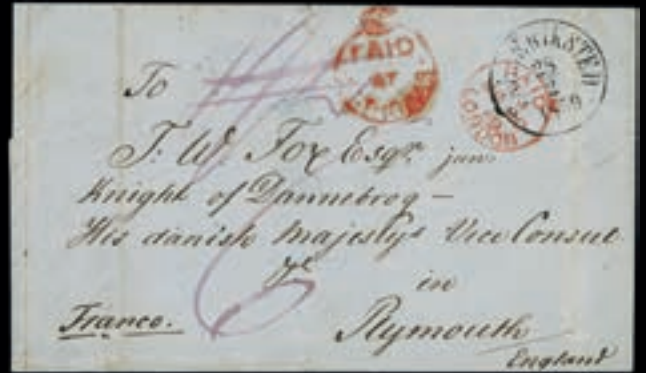 PAID
PAID
LONDON
To
T. W. Fox Esqr. jun.
Knight of Dannebrog –
His danish Majestys Vice Consul
in
Franco. Plymouth
England